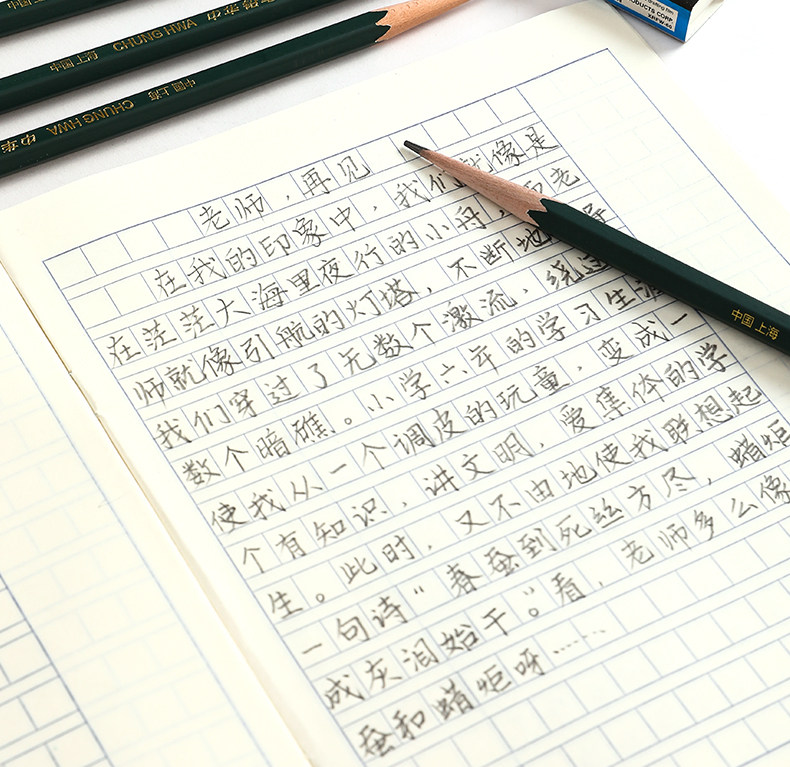 中国上海 CHUNG HWA 中华
中国上海 CHUNG HWA 中华
ODUCTS CORP.
老师，再见
在我的印象中，我们就像是
在茫茫大海里夜行的小舟，而老
师就像引航的灯塔，不断地
我们穿过了无数个激流，绕过
数个暗礁。小学六年的学习生涯
使我从一个调皮的玩童，变成一
个有知识，讲文明，爱集体的学
生。此时，又不由地使我联想起
一句诗“春蚕到死丝方尽，蜡炬
成灰泪始干”。看，老师多么像
蚕和蜡炬呀……
中国上海